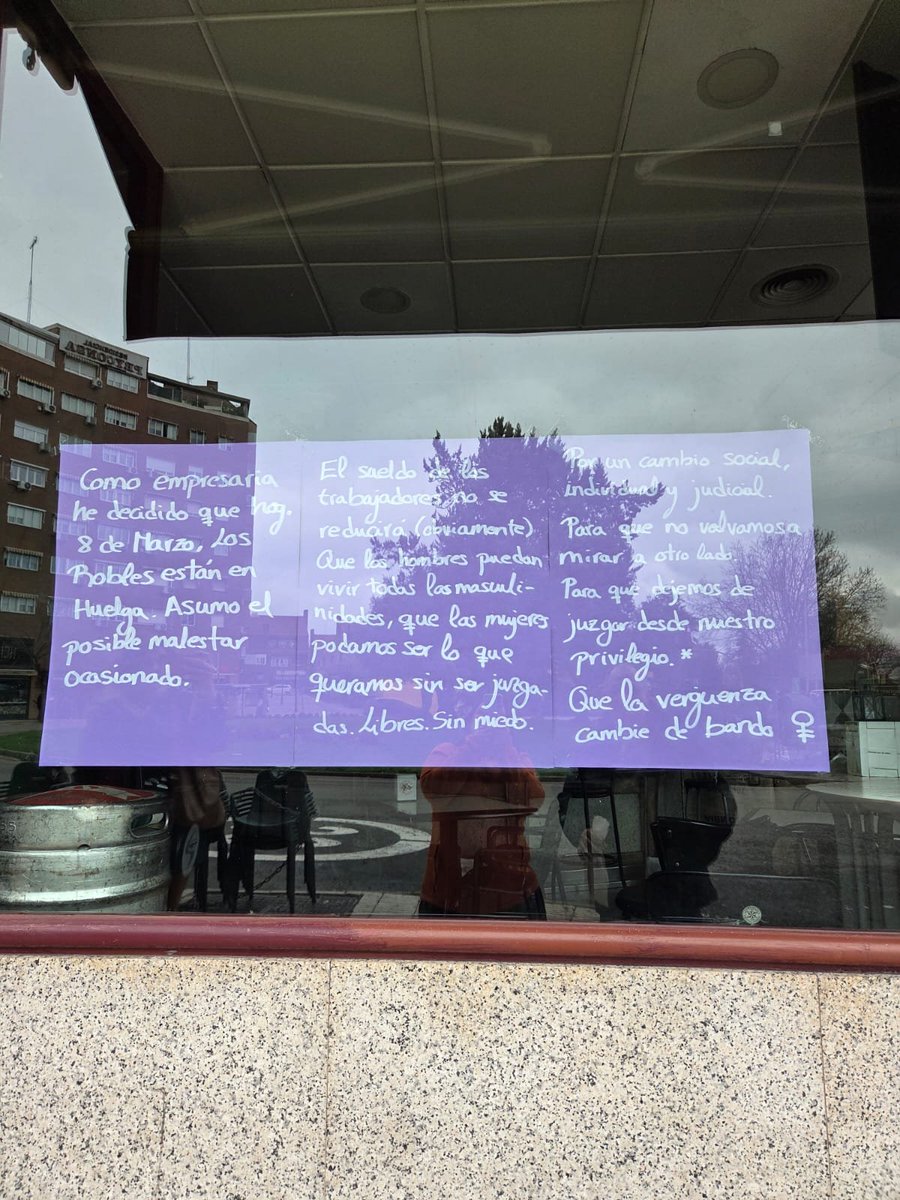 Como empresaria
he decidido que hoy.
8 de Marzo, Los
Robles están en
Huelga. Asumo el
posible malestar
ocasionado.
El sueldo de los
trabajadores no se
reducirá (obviamente)
Que los hombres puedan
vivir todas las masculi-
nidades, que las mujeres
podamos ser lo que
queramos sin ser juzga-
das. Libres. Sin miedo.
Por un cambio social,
individual y judicial.
Para que no volvamos a
mirar a otro lado
Para que dejemos de
juzgar desde nuestro
privilegio. *
Que la verguenza
cambie de bando ♀